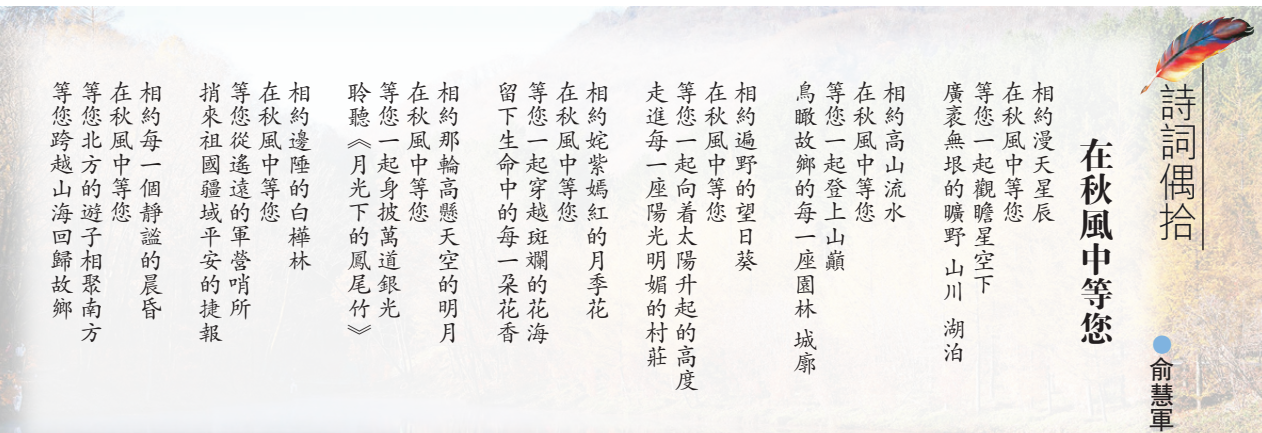 詩詞偶拾
在秋風中等您
●俞慧軍
相約漫天星辰
在秋風中等您
等您一起觀瞻星空下
廣袤無垠的曠野 山川 湖泊
相約高山流水
在秋風中等您
等您一起登上山巔
鳥瞰故鄉的每一座園林 城廓
相約遍野的望日葵
在秋風中等您
等您一起向着太陽升起的高度
走進每一座陽光明媚的村莊
相約姹紫嫣紅的月季花
在秋風中等您
等您一起穿越斑斕的花海
留下生命中的每一朵花香
相約那輪高懸天空的明月
在秋風中等您
等您一起身披萬道銀光
聆聽《月光下的鳳尾竹》
相約邊陲的白樺林
在秋風中等您
等您從遙遠的軍營哨所
捎來祖國疆域平安的捷報
相約每一個靜謐的晨昏
在秋風中等您
等您北方的遊子相聚南方
等您跨越山海回歸故鄉